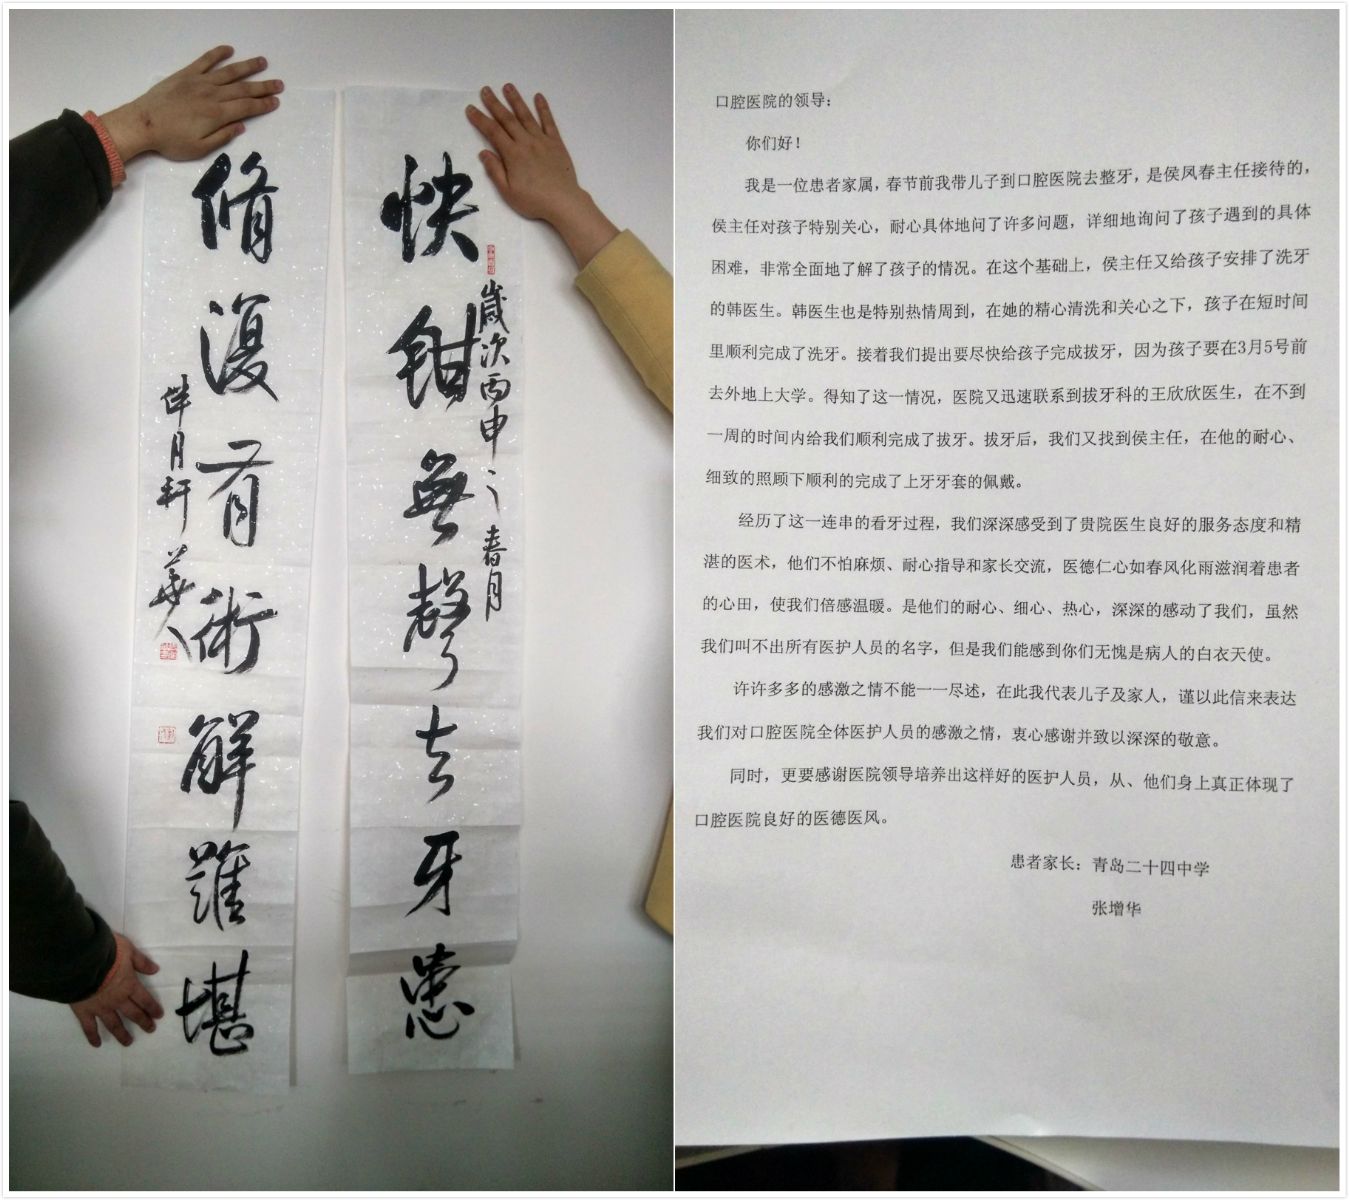 快鉗無聲去牙患
歲次丙申之春月
脩復有術解難堪
伴月軒
口腔医院的领导：
你们好！
我是一位患者家属，春节前我带儿子到口腔医院去整牙，是侯凤春主任接待的，
侯主任对孩子特别关心，耐心具体地问了许多问题，详细地询问了孩子遇到的具体
困难，非常全面地了解了孩子的情况。在这个基础上，侯主任又给孩子安排了洗牙
的韩医生。韩医生也是特别热情周到，在她的精心清洗和关心之下，孩子在短时间
里顺利完成了洗牙。接着我们提出要尽快给孩子完成拔牙，因为孩子要在3月5号前
去外地上大学。得知了这一情况，医院又迅速联系到拔牙科的王欣欣医生，在不到
一周的时间内给我们顺利完成了拔牙。拔牙后，我们又找到侯主任，在他的耐心、
细致的照顾下顺利的完成了上牙牙套的佩戴。
经历了这一连串的看牙过程，我们深深感受到了贵院医生良好的服务态度和精
湛的医术，他们不怕麻烦、耐心指导和家长交流，医德仁心如春风化雨滋润着患者
的心田，使我们倍感温暖。是他们的耐心、细心、热心，深深的感动了我们，虽然
我们叫不出所有医护人员的名字，但是我们能感到你们无愧是病人的白衣天使。
许许多多的感激之情不能一一尽述，在此我代表儿子及家人，谨以此信来表达
我们对口腔医院全体医护人员的感激之情，衷心感谢并致以深深的敬意。
同时，更要感谢医院领导培养出这样好的医护人员，从、他们身上真正体现了
口腔医院良好的医德医风。
患者家长：青岛二十四中学
张增华